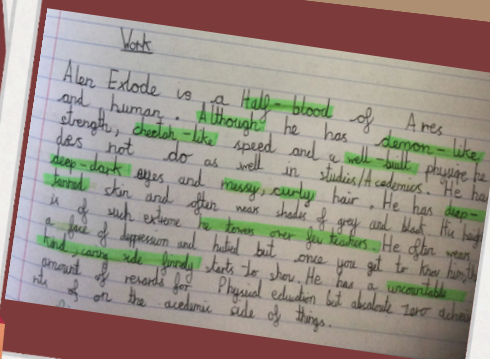 Work
Alen Exlode is a Half-blood of Ares
and human. Although he has demon-like
strength, cheetah-like speed and a well-built physique he
does not do as well in studies/Academics. He has
deep-dark eyes and messy, curly hair. He has deep-
tanned skin and often wears shades of grey and black. His height
is of such extreme he towers over few teachers. He often wears
a face of depression and hatred but once you get to know him, the
kind, caring side finely starts to show. He has a uncountable
amount of rewards for Physical education but absolute zero
of on the academic side of things.